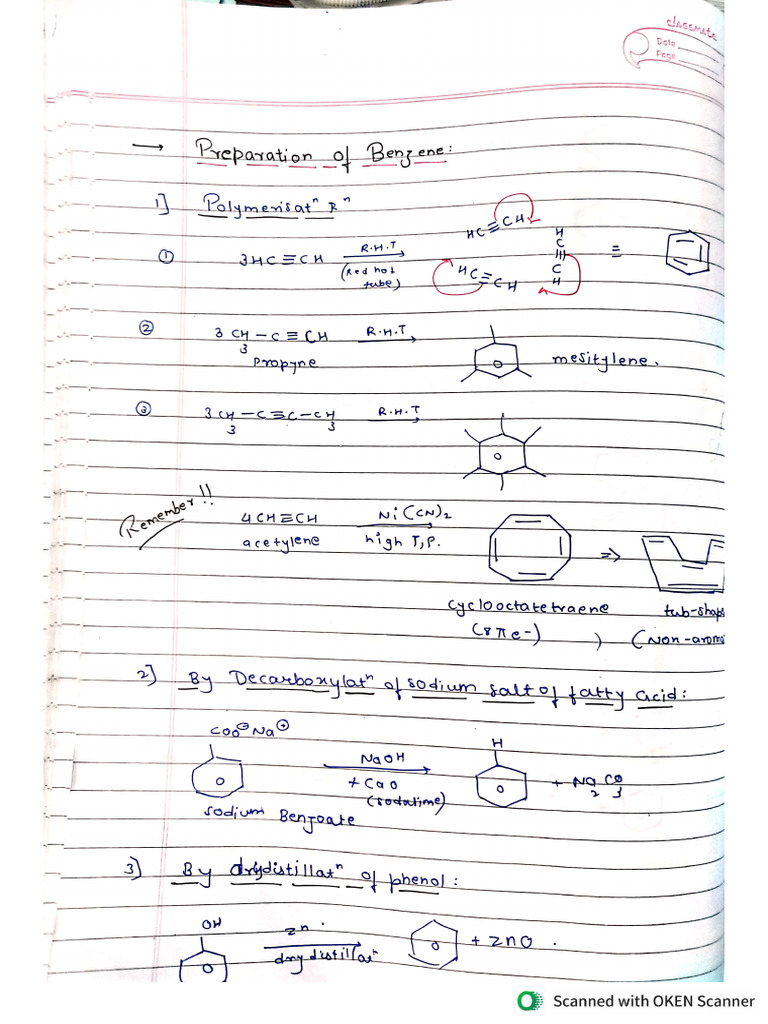 classmate
Date
Page
→ Preparation of Benzene:
1] Polymerisatⁿ Rⁿ
① 3HC≡CH R.H.T (Red hot tube) HC≡CH HC≡CH HC≡CH ≡
② 3CH₃-C≡CH R.H.T mesitylene.
Propyne
③ 3CH₃-C≡C-CH₃ R.H.T
Remember!! 4CH≡CH Ni(CN)₂ ⇒
acetylene high T,P.
cyclooctatetraene tub-shape
(8πe-) , (Non-arom
2] By Decarboxylatⁿ of sodium salt of fatty acid:
COO⊖Na⊕ NaOH + CaO (sodalime) H + Na₂CO₃
sodium Benzoate
3) By drydistillatⁿ of phenol:
OH zn. drydistillatⁿ + ZnO.
Scanned with OKEN Scanner